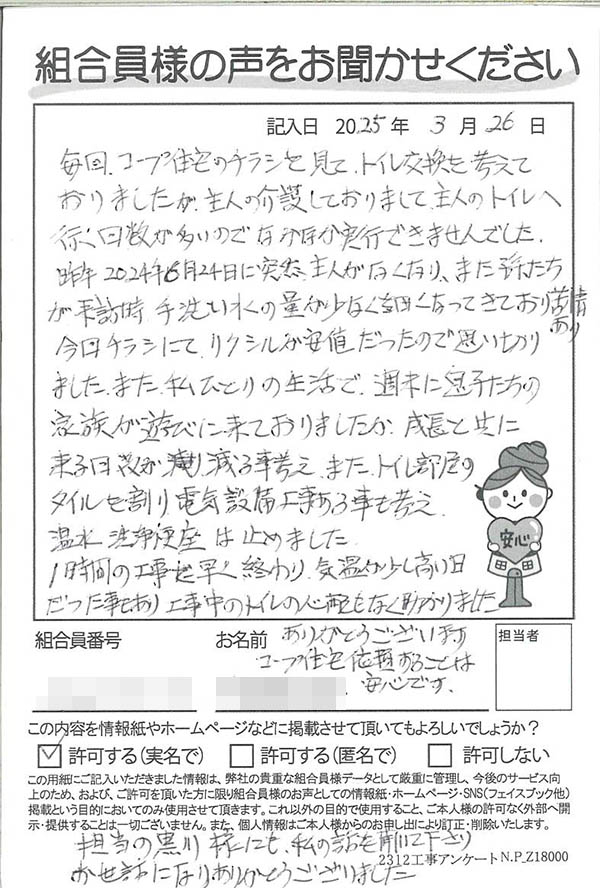 組合員様の声をお聞かせください
記入日 2025年 3月 26日
毎回、コープ住宅のチラシを見て、トイレ交換を考えて
おりましたが、主人の介護しておりまして、主人のトイレへ
行く回数が多いのでなかなか実行できませんでした。
昨年2024年6月24日に突然、主人がなくなり、また孫たち
が来訪時、手洗い水の量が少なく細くなってきており苦情
あり
今回チラシにて、リクシルが安値だったので思いきり
ました。また、私ひとりの生活で、週末に息子たちの
家族が遊びに来ておりましたが、成長と共に
来る回数が減り減る事考え、また、トイレ部屋の
タイルを割り電気設備工事ある事も考え、
温水洗浄便座は止めました。
1時間の工事も早く終わり、気温が少し高い日
だった事もあり工事中のトイレの心配もなく助かりました
安心
組合員番号
お名前
ありがとうございます
コープ住宅依頼することは
安心です。
担当者
この内容を情報紙やホームページなどに掲載させて頂いてもよろしいでしょうか?
☑許可する(実名で) □許可する(匿名で) □許可しない
この用紙にご記入いただきました情報は、弊社の貴重な組合員様データとして厳重に管理し、今後のサービス向
上のため、および、ご許可を頂いた方に限り組合員様のお声としての情報紙・ホームページ・SNS(フェイスブック他)
掲載という目的においてのみ使用させて頂きます。これ以外の目的で使用すること、ご本人様の許可なく外部へ開
示・提供することは一切ございません。また、個人情報はご本人様からのお申し出により訂正・削除いたします。
担当の黒川様にも、私の話を聞いて下さり
2312工事アンケートN.P_Z18000
お世話になりありがとうございました